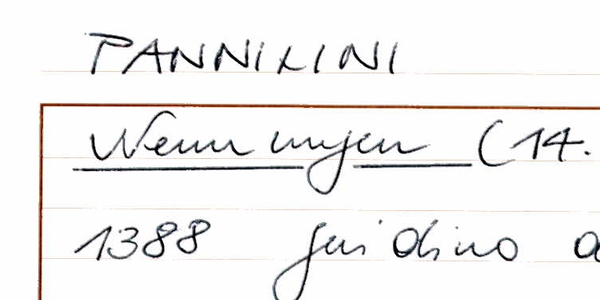 PANNILINI
Nennungen (14.
1388 Guidino